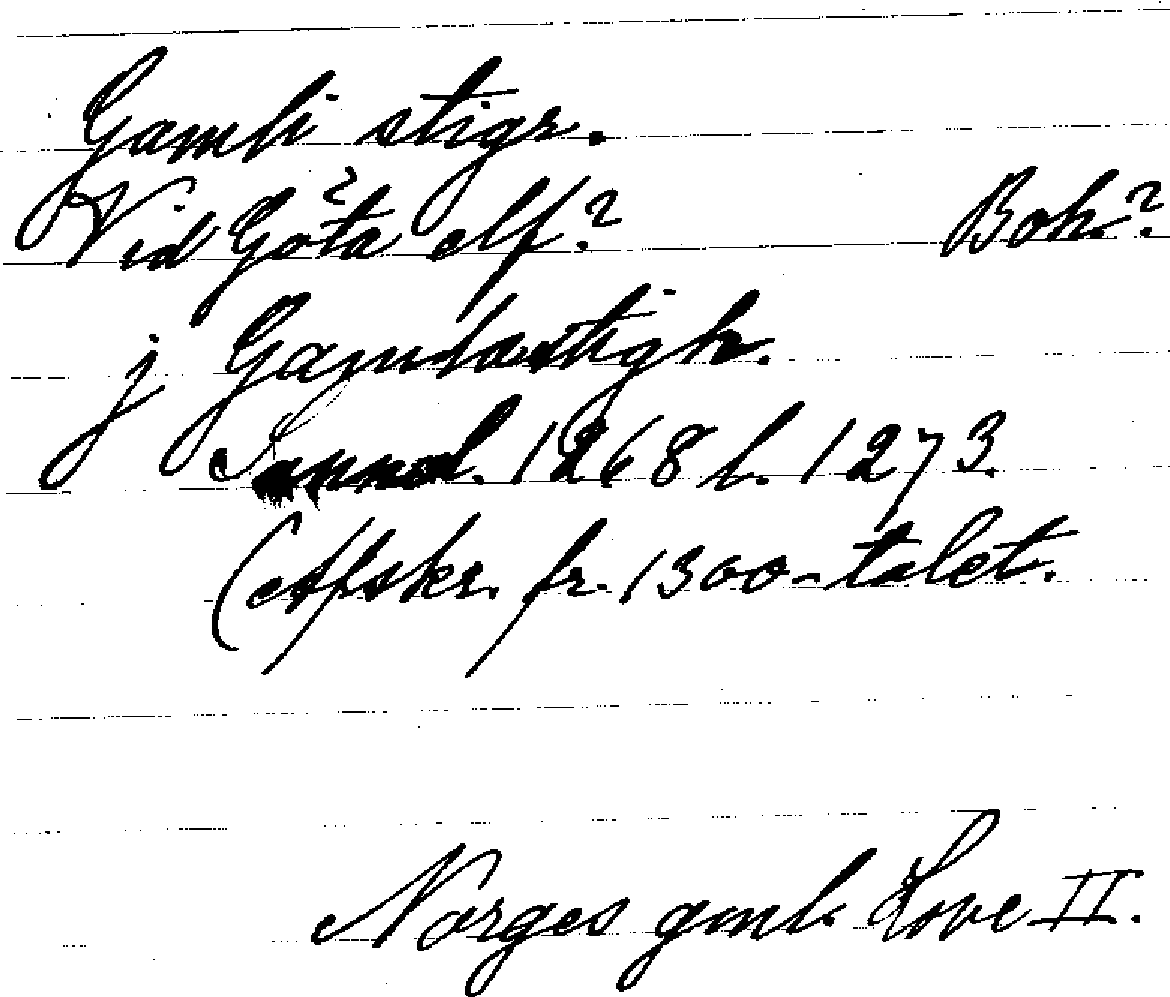 Gamli stigr.
Vid Göta elf.? Boh.?
j Gamlastigh.
Sannol. 1268 l. 1273.
(Afskr. fr. 1300-talet.
Norges gml. Love II.